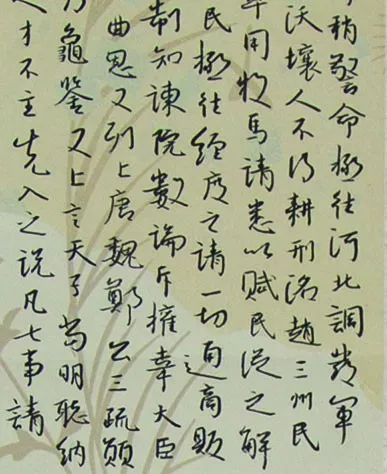 稍警命拯往河北調發軍
沃壤人不得耕刑洺趙三州民
率用牧馬請悉以賦民從之解
民拯往經度之請一切通商販
制知諫院數論斥權幸大臣
曲恩又列上唐魏鄭公三疏願
龜鑒又上言天子當明聰納
人才不主先入之說凡七事請